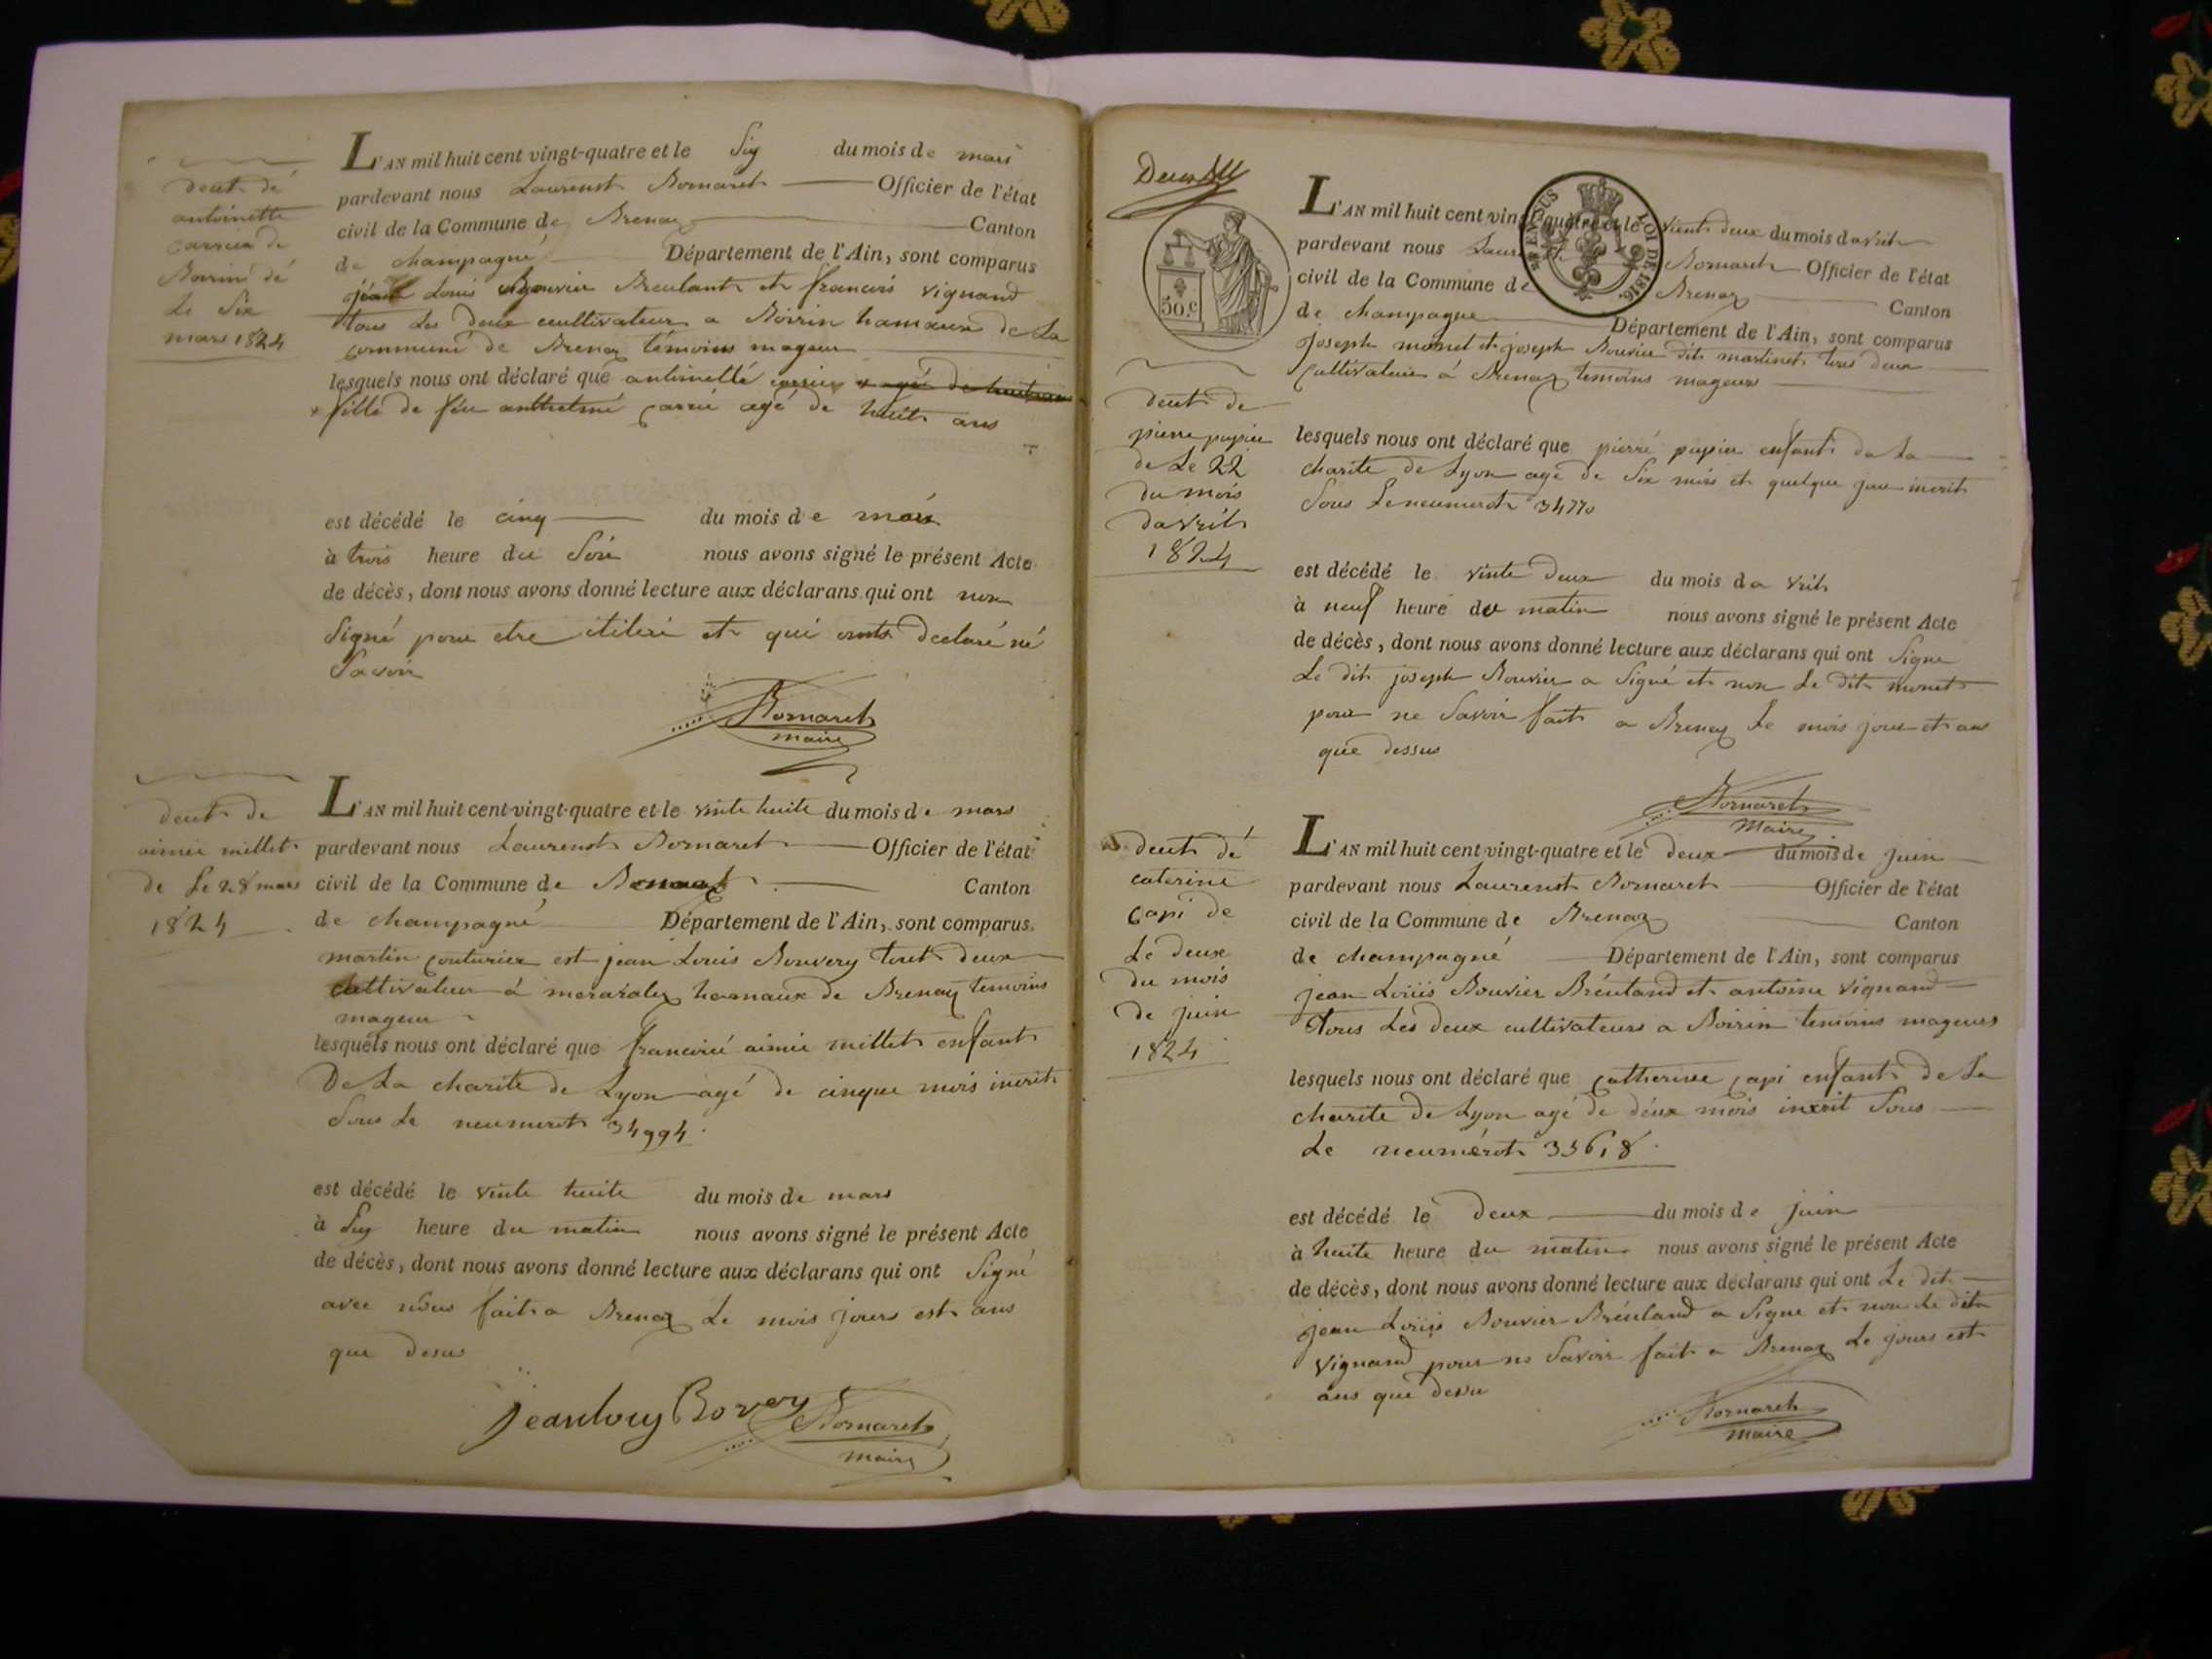 deut dé
antoinette
carrier de
Boirin dé
Le Six
mars 1824
L'AN mil huit cent vingt-quatre et le Six du mois de mars
pardevant nous Laurenst Bornaret Officier de l'état
civil de la Commune de Brenaz Canton
de champagne Département de l'Ain, sont comparus
jean Louis Bouvier Breulant et francois vignand
tous Les Deux cultivateur a Boirin hamaux de La
commune de Brenaz témoins mageur
lesquels nous ont déclaré que antoinette carrier
fille de feu anthelme carrié agé de huit ans
est décédé le cinq du mois de mars
à trois heure du Soir nous avons signé le présent Acte
de décès, dont nous avons donné lecture aux déclarans qui ont non
Signé pour etre itileré et qui onts declaré né
Savoir
Bornaret
maire
deut de
aimée millet
de Le 28 mars
1824
L'AN mil huit cent vingt-quatre et le vinte huite du mois de mars
pardevant nous Laurenst Bornaret Officier de l'état
civil de la Commune de Brenaz Canton
de champagne Département de l'Ain, sont comparus
martin couturier est jean Louis Bouvery tout deux
cultivateur à meraraley hamaux de Brenaz temoins
mageur
lesquels nous ont déclaré que francoise aimée millet enfant
De La charite de Lyon agé de cinque mois inscrit
Sous Le neumerot 34994
est décédé le vinte huite du mois de mars
à Six heure du matin nous avons signé le présent Acte
de décès, dont nous avons donné lecture aux déclarans qui ont Signé
avec nous fait a Brenaz Le mois jours est ans
que desus
jeanlouy Bovery Bornaret
maire
50.c
EN SUS LOI DE 1816.
deut de
pierre papier
de Le 22
du mois
davril
1824
L'AN mil huit cent vingt-quatre et le vient deux du mois davril
pardevant nous Laurenst Bornaret Officier de l'état
civil de la Commune de Brenaz Canton
de champagne Département de l'Ain, sont comparus
joseph monet et joseph Bouvier dit martinet tous deux
cultivateur á Brenaz temoins mageurs
lesquels nous ont déclaré que pierré papier enfant da La
charite de Lyon agé de Six mois et quelque jour incrit
Sous Le neumerot 34770
est décédé le vinte deux du mois da vril
à neuf heure du matin nous avons signé le présent Acte
de décès, dont nous avons donné lecture aux déclarans qui ont Signe
Le dit joseph Bouvier a Signé et non Le dit monet
pour ne Savoir fait a Brenaz Le mois jour et an
que dessus
Bornaret
Maire
deut dé
caterine
Capi de
Le deux
du mois
de juin
1824
L'AN mil huit cent vingt-quatre et le deux du mois de juin
pardevant nous Laurenst Bornaret Officier de l'état
civil de la Commune de Brenaz Canton
de champagné Département de l'Ain, sont comparus
jean Loüis Bouvier Bréuland et antoine vignand
Tous Les deux cultivateurs a Boirin temoins mageurs
lesquels nous ont déclaré que catherine capi enfant de La
charite de Lyon agé de déux mois inxrit Sous
Le neumérot 35618
est décédé le Deux du mois de juin
à huite heure du matin nous avons signé le présent Acte
de décès, dont nous avons donné lecture aux déclarans qui ont Le dit
jean Loüis Bouvier Bréuland a Signe et non Le dit
vignand pour ne Savoir fait a Brenaz Le jours est
ans que dessu
Bornaret
maire